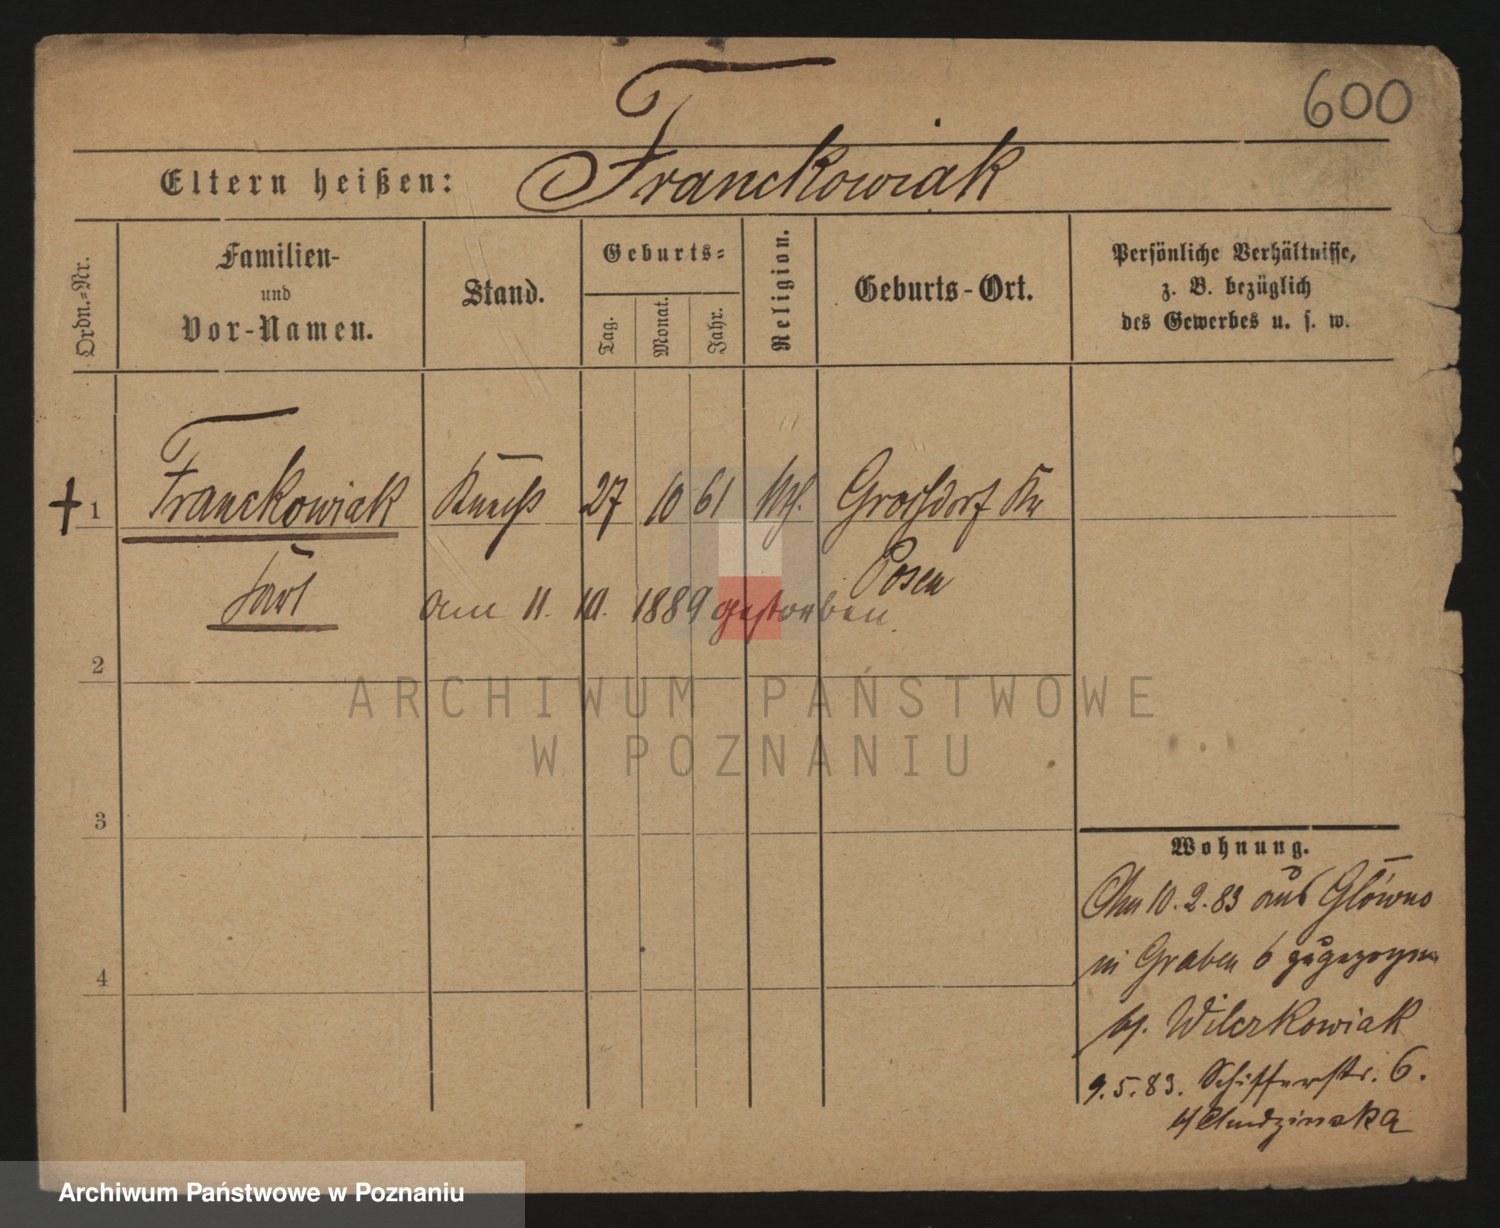 600
Eltern heißen: Franckowiak
Ordn.=Nr.
Familien-
und
Vor-Namen.
Stand.
Geburts=
Tag.
Monat.
Jahr.
Religion.
Geburts-Ort.
Persönliche Verhältnisse,
z. B. bezüglich
des Gewerbes u. s. w.
1 Franckowiak 27 10 61 Kth.
Posen
am 11. 10. 1889 gestorben.
2
3
4
Wohnung.
Am 10.2.83 aus Główno
in Graben 6 zugezogen
bj. Wilczkowiak
9.5.83. Schifferstr. 6.
ARCHIWUM PAŃSTWOWE
W POZNANIU
Archiwum Państwowe w Poznaniu